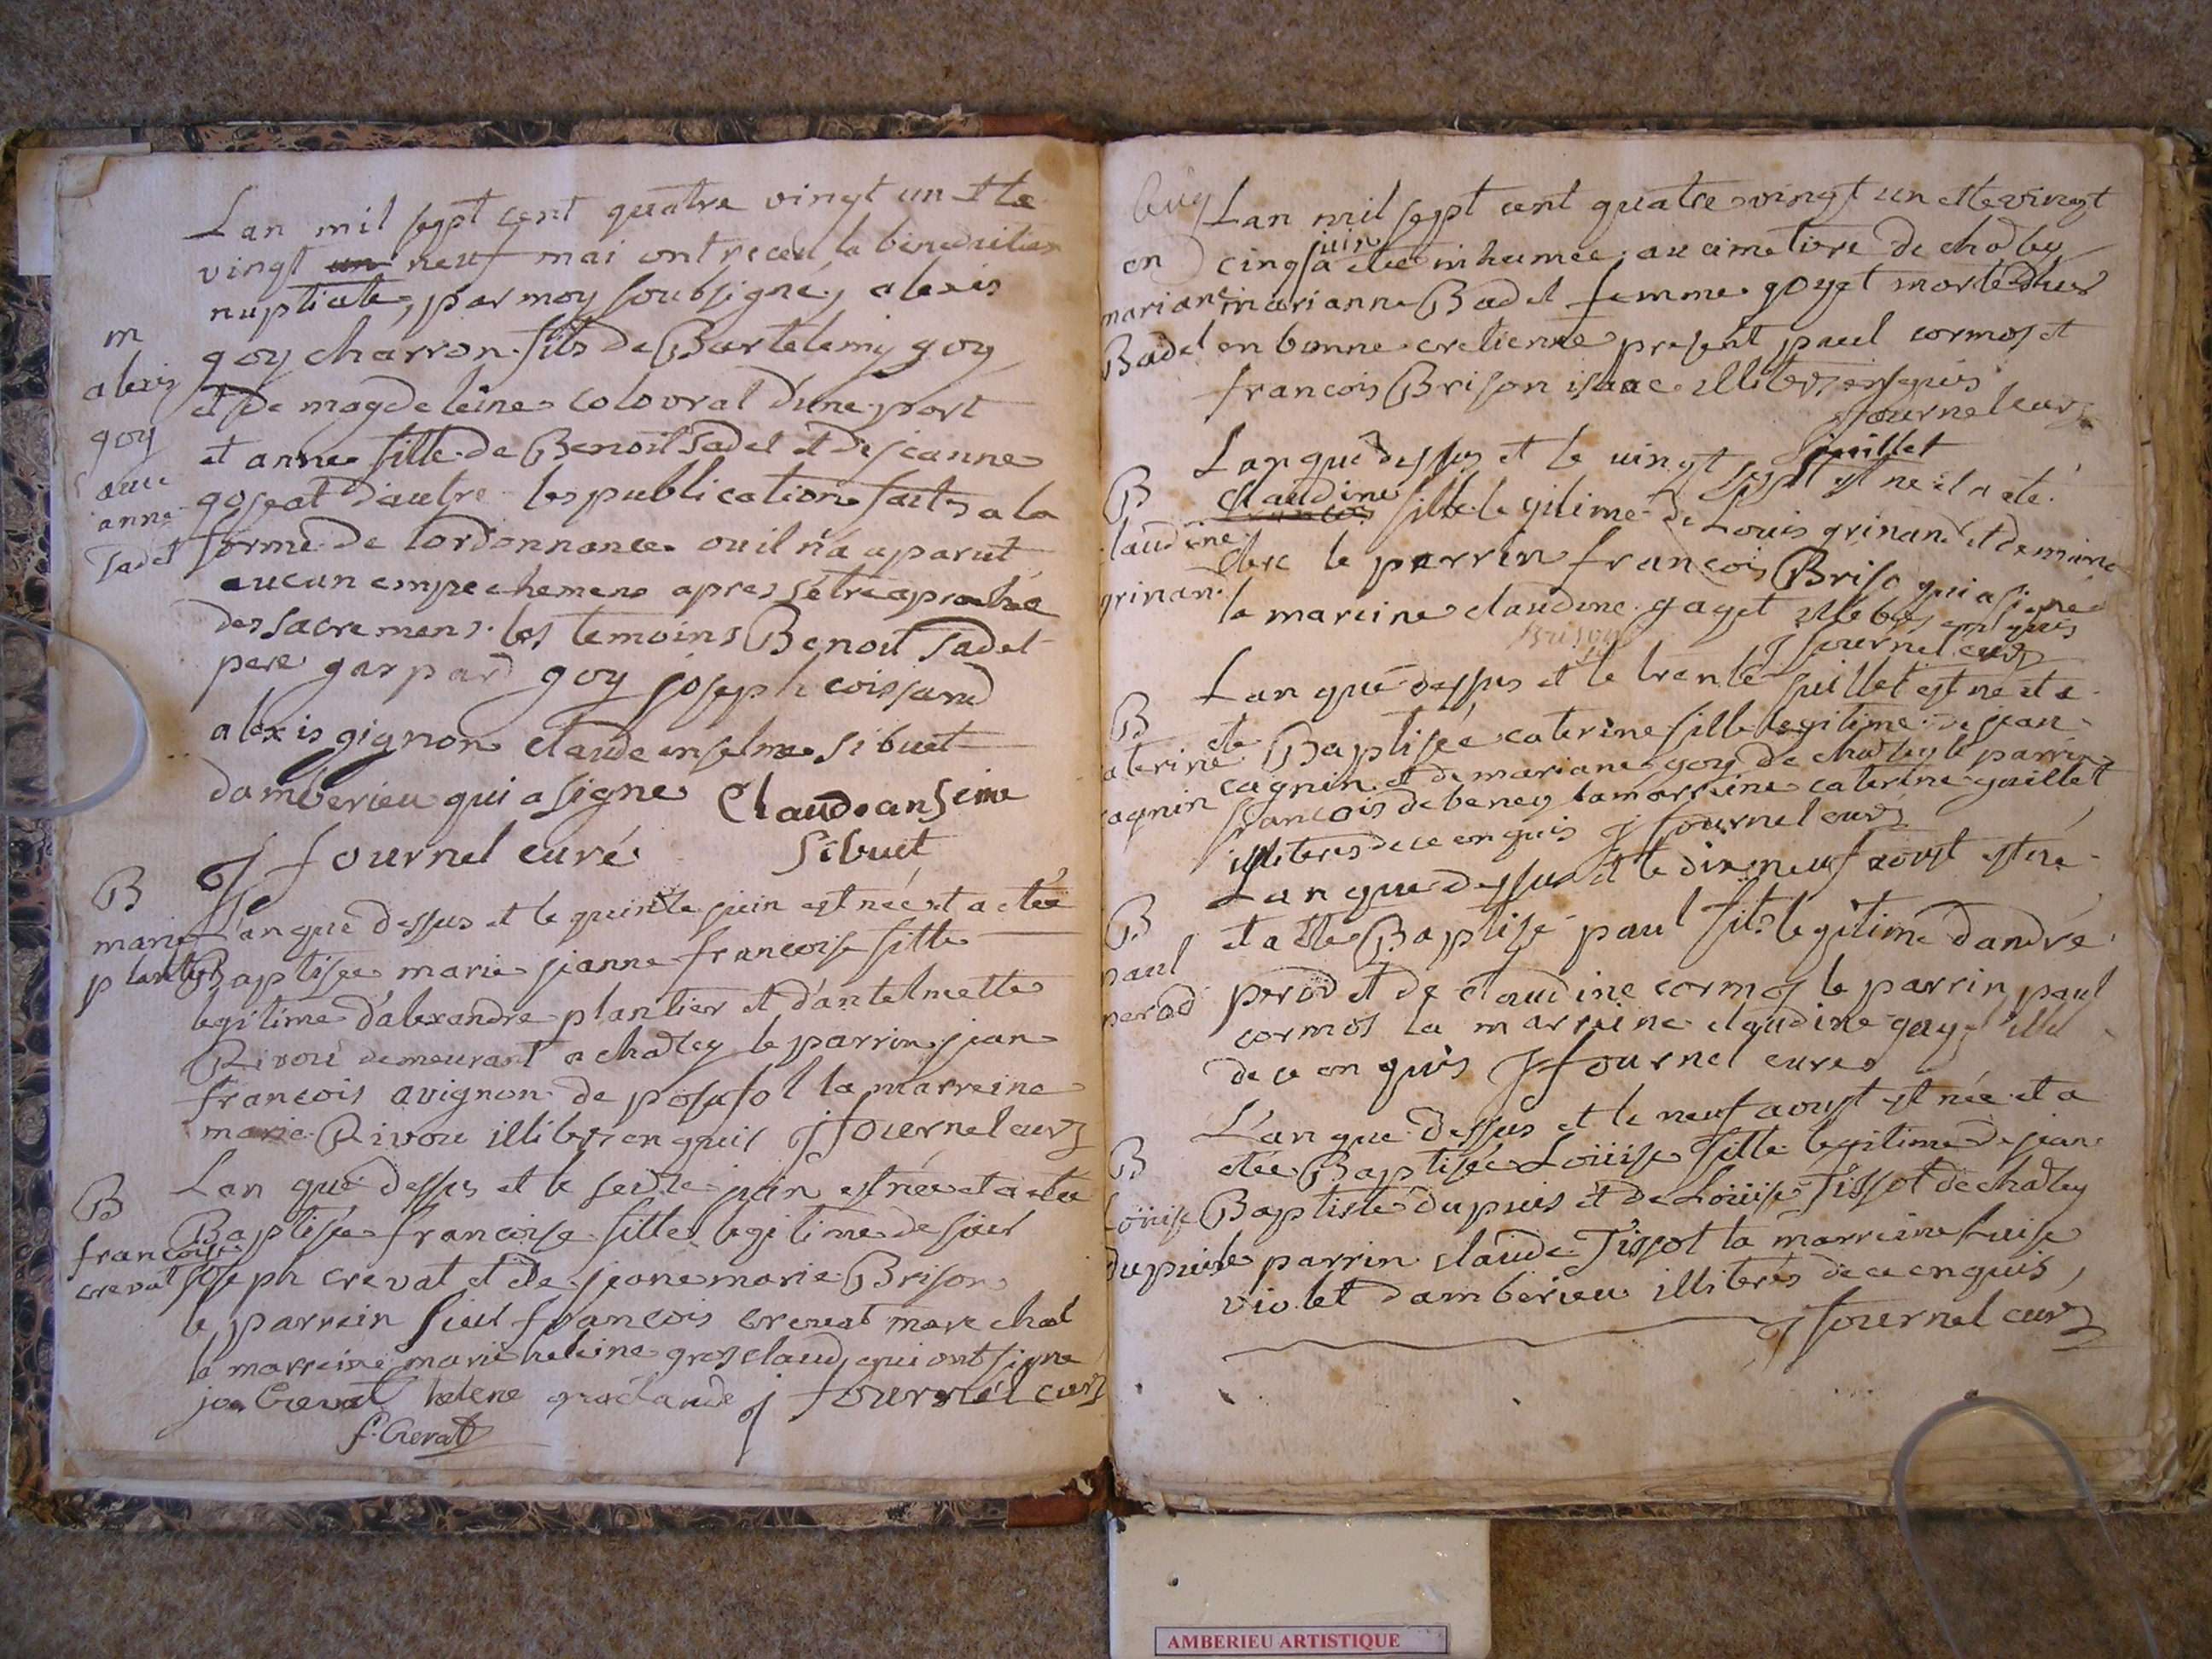 Lan mil sept cent quatre vingt un et le
vingt un neuf mai ont receu la benediction
nuptiale, par moy soubsigné, alexis
goy charron fils de Bartelemy goy
et de magdeleine colovrat d'une part
et anne fille de Benoit Tadel et de jeanne
d'autre les publications faites a la
forme de lordonnance ou il n'a aparut
aucun empechemens apres s'étre aproché
des sacremens les temoins Benoit Tadel
pere gaspard goy joseph coissard
alexis gignon claude anselme sibuet
damberieu qui a signe Claude anselme
Sibuet
J fournel curé
m
alexis
goy
avec
anne
Tadel
B
marie
plantier
Lan que dessus et le quinze juin est née et a etée
Baptisée marie jeanne francoise fille
legitime d'alexandre plantier et d'antelmette
Rivoire demeurant a chatley le parrin jean
francois avignon de la marreine
marie Rivou illiterés enquis J fournel curé
B
francoise
crevat
Lan que dessus et le seize juin est née et a etée
Baptisée francoise fille legitime de sieur
joseph crevat et de jeane marie Brison
le parrein sieur francois crevat marechal
la marreine marie heleine grosclaud qui ont signe
jo. Crevat helene grosclaude J fournel curé
f. Crevat
en
mariane
Badel
Lan mil sept cent quatre vingt un et le vingt
cinq juin a etée inhumée au cimetiere de chatley
marianne Badel femme goyet morte d'hier
en bonne cretienne present paul cormos et
francois Brison isaac illiterés enquis
fournel curé
B
laudine
grinand
Lan que dessus et le vingt sept juillet est né et a eté
claudine francois fille legitime de Louis grinand et de
clerc le parrin francois Briso qui a signé
la mareine claudine gaget illiteres enquis
Brison
J fournel curé
B
aterine
cagnin
Lan que dessus et le trente juillet est né et a
ete Baptisée caterine fille legitime de jean
cagnin et de mariane goy de chatley le parrin
francois de beney la marreine caterine guillet
illiteres de ce enquis J fournel curé
B
paul
perod
Lan que dessus et le dix neuf aoust est né
et a ette Baptisé paul fils legitime d'andré
perod et de claudine cormos le parrin paul
cormos la marreine claudine gay ille
de ce enquis J fournel curé
B
Loüise
dupuis
L'an que dessus et le neuf aoust est née et a
etée Baptisée Loüise fille legitime de jean
Baptiste dupuis et de Loüise Tissot de chatley
le parrin claude Tissot la marreine Luise
violet damberieu illiterés de ce enquis
J fournel curé
AMBERIEU ARTISTIQUE